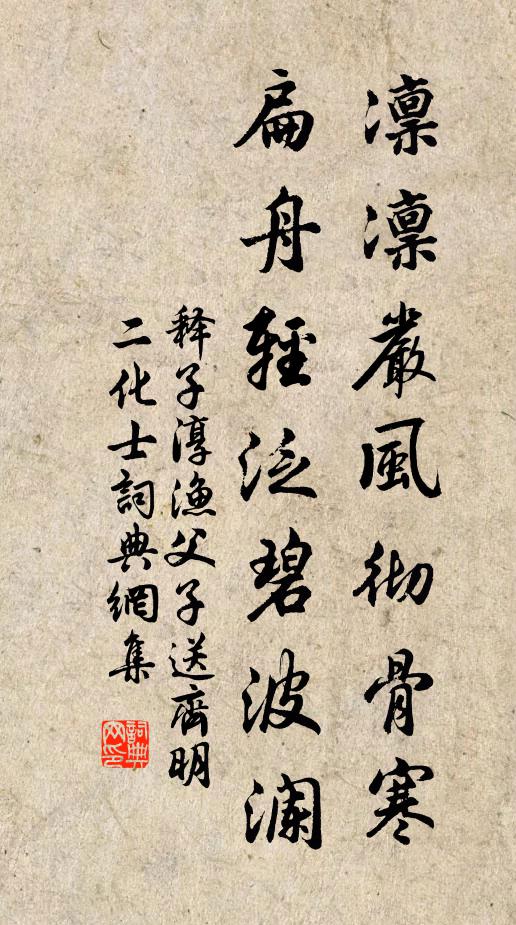 凛凛嚴風彻骨寒
扁舟輕泛碧波瀾
释子淳漁父子送齊明
二化士詞典網集
詞典
网印